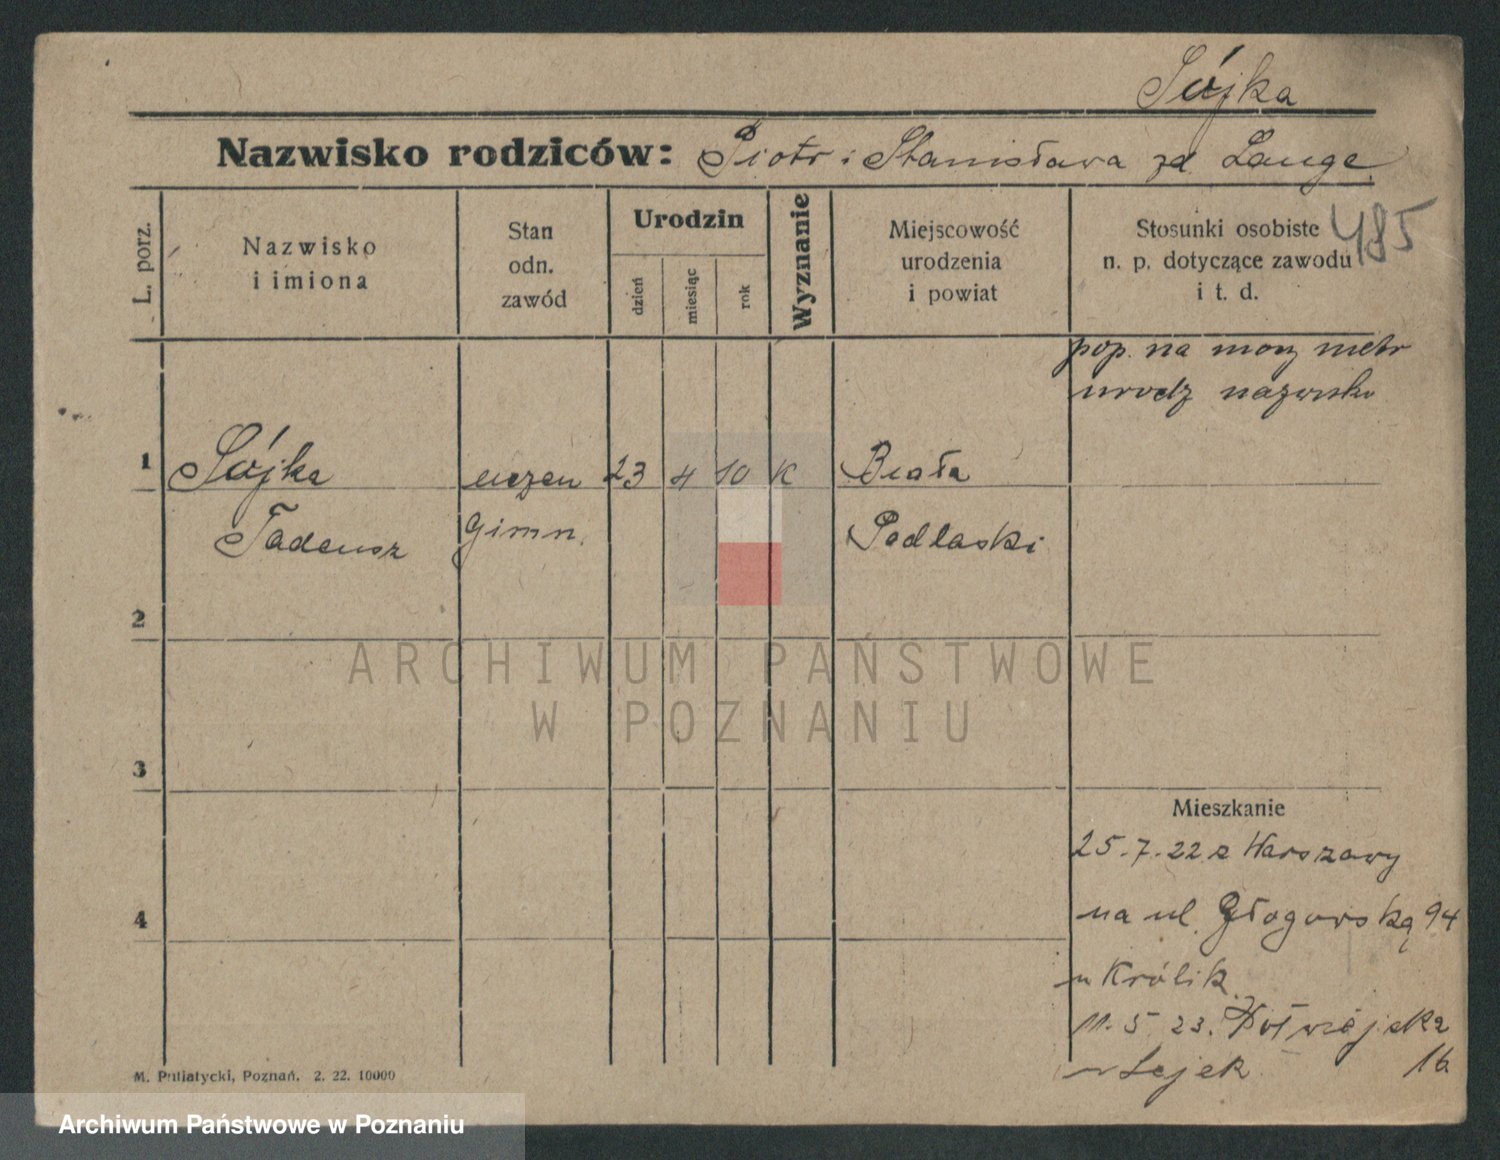 Sójka
Nazwisko rodziców: Piotr i Stanisława zd Lange
485
L. porz.
Nazwisko
i imiona
Stan
odn.
zawód
Urodzin
dzień
miesiąc
rok
Wyznanie
Miejscowość
urodzenia
i powiat
Stosunki osobiste
n. p. dotyczące zawodu
i t. d.
pop. na mocy metr
urodz nazwisko
1 Sójka uczen 23 4 10 K Biała
Tadeusz Gimn. Podlaski
2
ARCHIWUM PAŃSTWOWE
W POZNANIU
3
Mieszkanie
25.7.22 z Warszawy
4
na ul. Głogowską 94
u Królik
11.5 23.
16
u Lejek
M. Putiatycki, Poznań, 2. 22. 10000
Archiwum Państwowe w Poznaniu